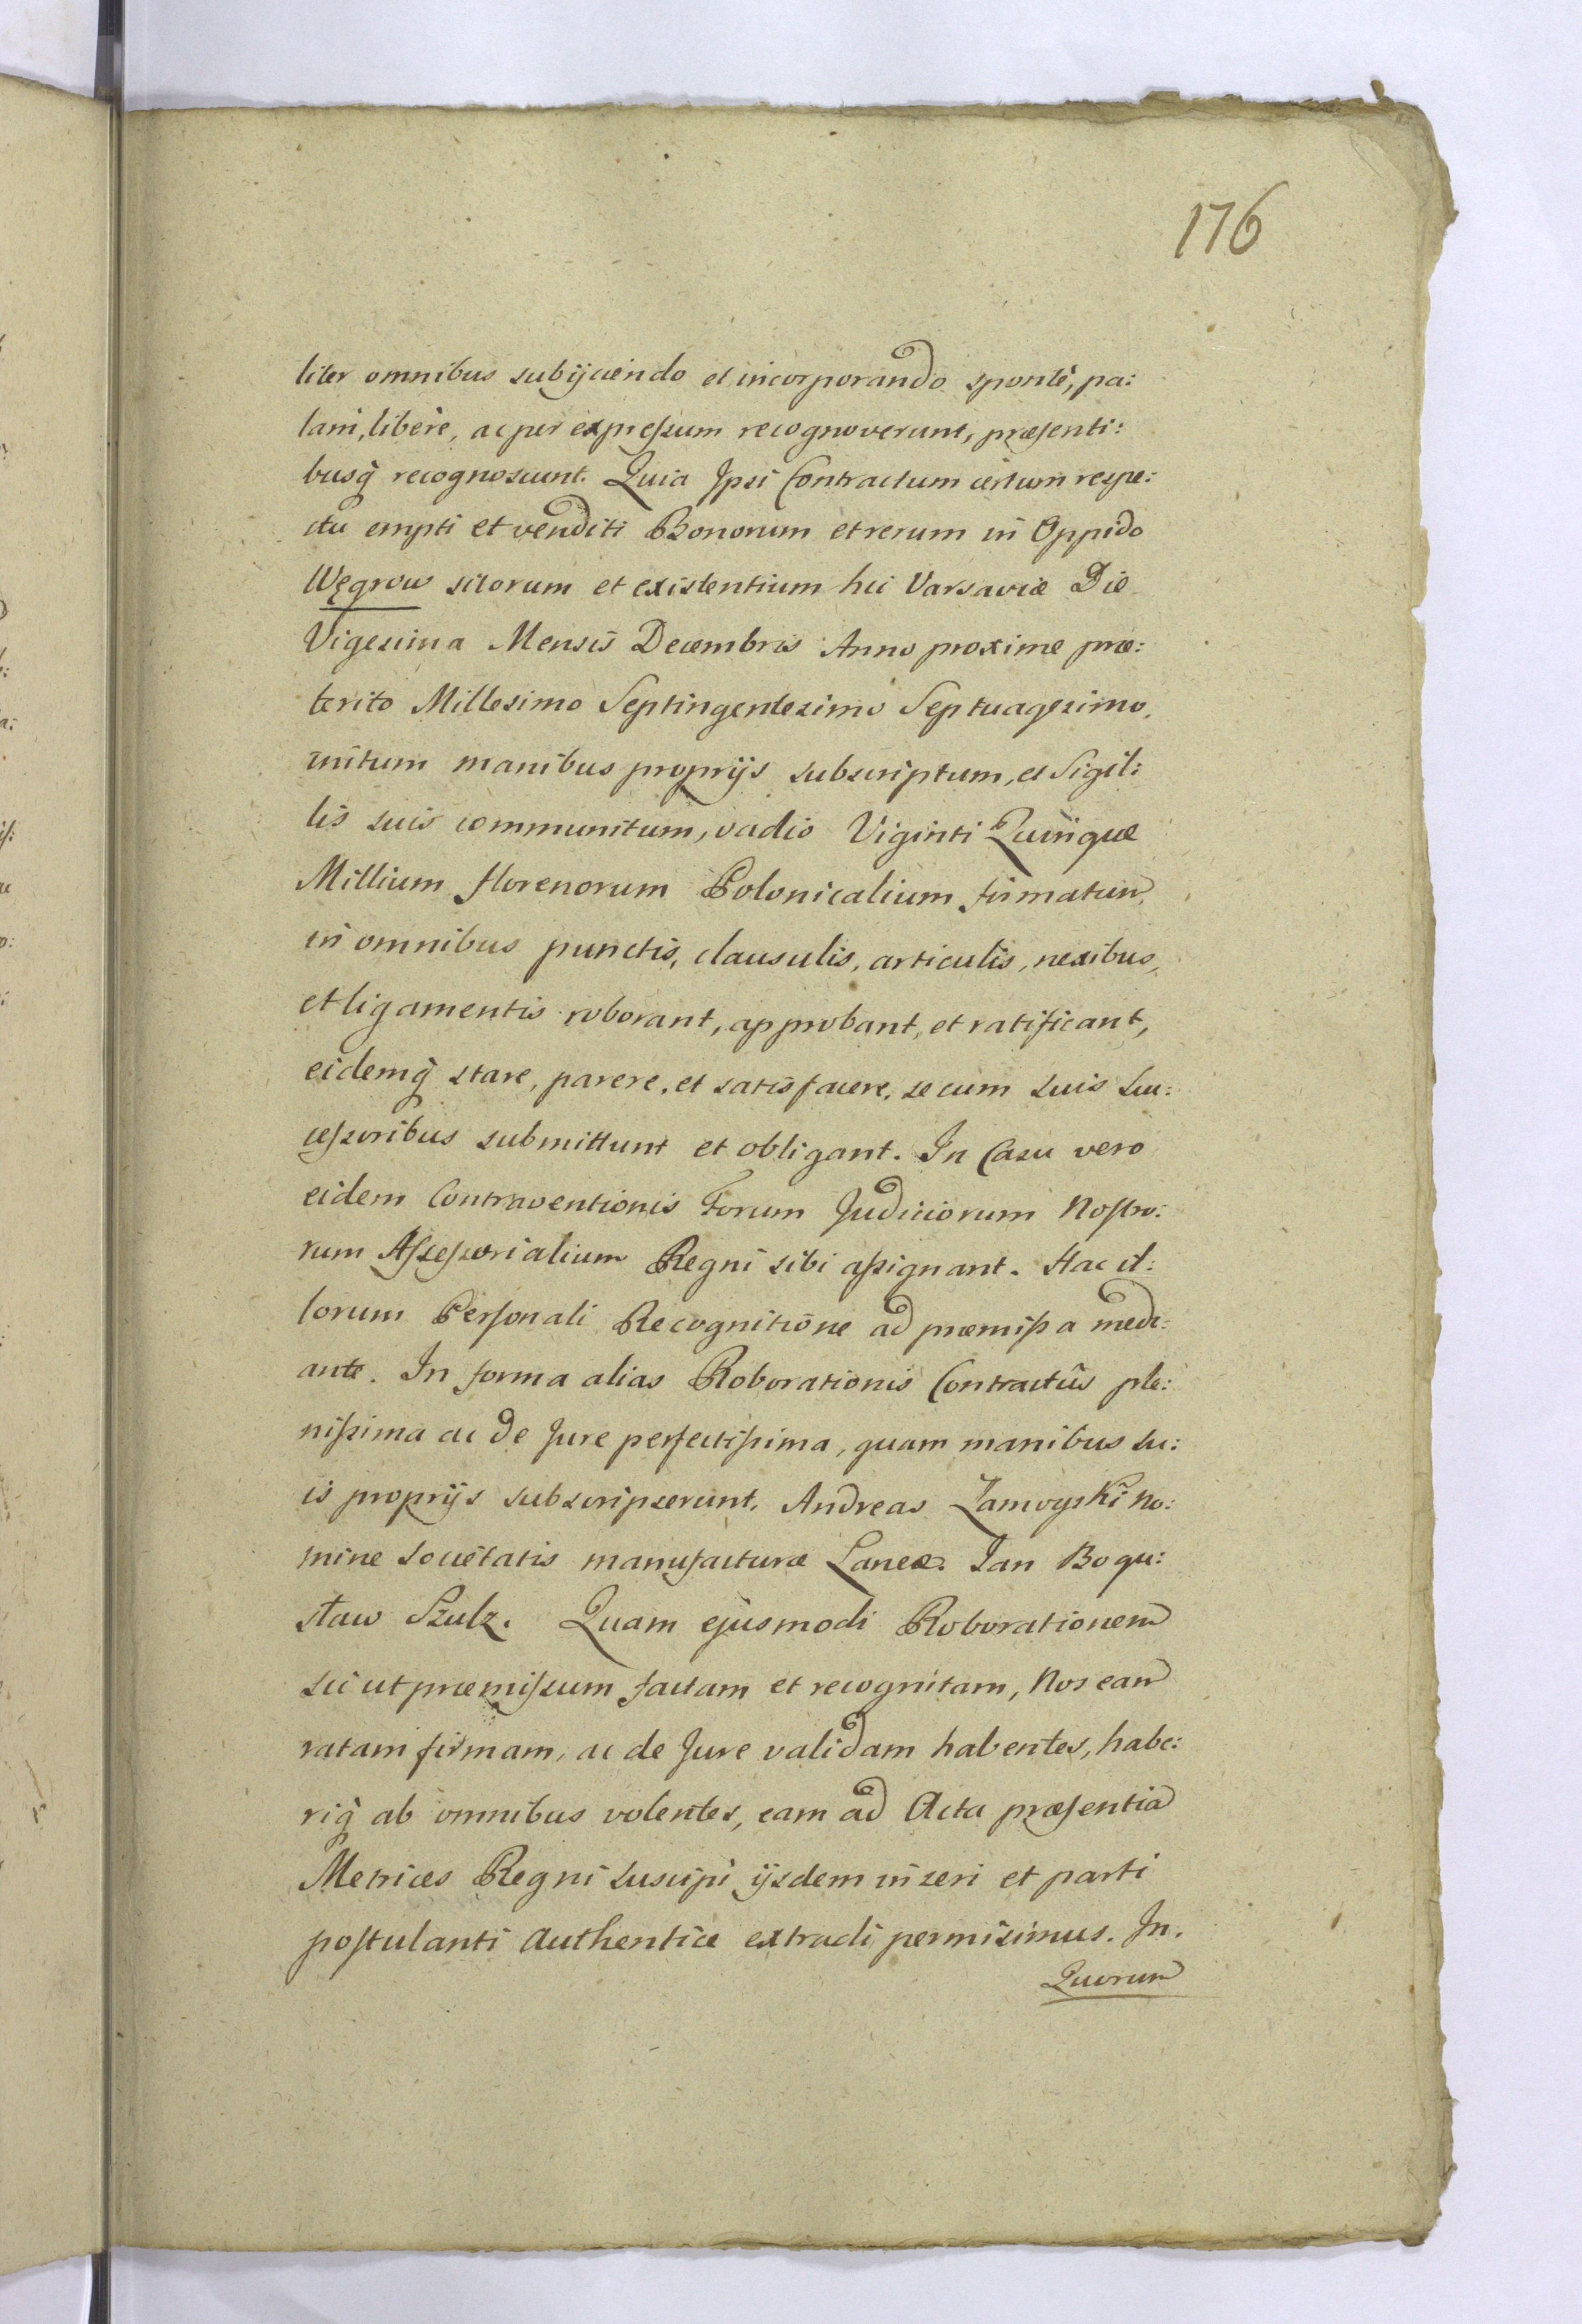 176
liter omnibus subijciendo et incorporando spontè, pa:
lam, liberè, ac per expreſsum recognoverunt, præſenti:
busq̀ recognoscunt. Quia Ipsi Contractum certum respe:
ctu empti et venditi Bonorum et rerum in Oppido
Węgrow sitorum et existentium hic Varsaviæ Die
Vigesima Mensis Decembris Anno proxime præ:
terito Millesimo Septingentesimo Septuagesimo,
initum manibus proprijs subscriptum, et Sigil:
lis suis communitum, vadio Viginti Quinque
Millium florenorum Polonicalium firmatum
in omnibus punctis, clausulis, articulis, nexibus,
et ligamentis roborant, approbant, et ratificant,
eidemq̀ stare, parere, et satisfacere, se cum suis Suc:
ceſsoribus submittunt et obligant. In Casu vero
eidem Contraventionis Forum Judiciorum Noſtro:
rum Aſseſsorialium Regni sibi aſsignant. Hac il:
lorum Perſonali Recognitione ad præmiſsa medi:
ante. In forma alias Roborationis Contractûs ple:
niſsima ac de Jure perfectiſsima, quam manibus su:
is proprijs subscripserunt. Andreas Zamoyski no:
mine Societatis manufacturæ Laneæ. Jan Bogu:
sław Szulz. Quam ejusmodi Roborationem
sic ut præmiſsum factam et recognitam, Nos eam
ratam firmam, ac de Jure validam habentes, habe:
riq̀ ab omnibus volentes, eam ad Acta præſentia
Metrices Regni suscipi ijsdem inseri et parti
poſtulanti Authentice extradi permisimus. In.
Quorum